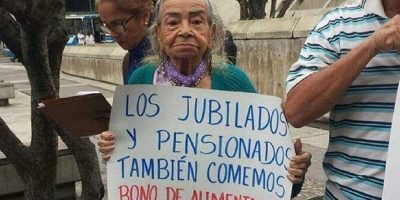 LOS JUBILADOS
Y PENSIONADOS
TAMBIÉN COMEMOS
BONO DE